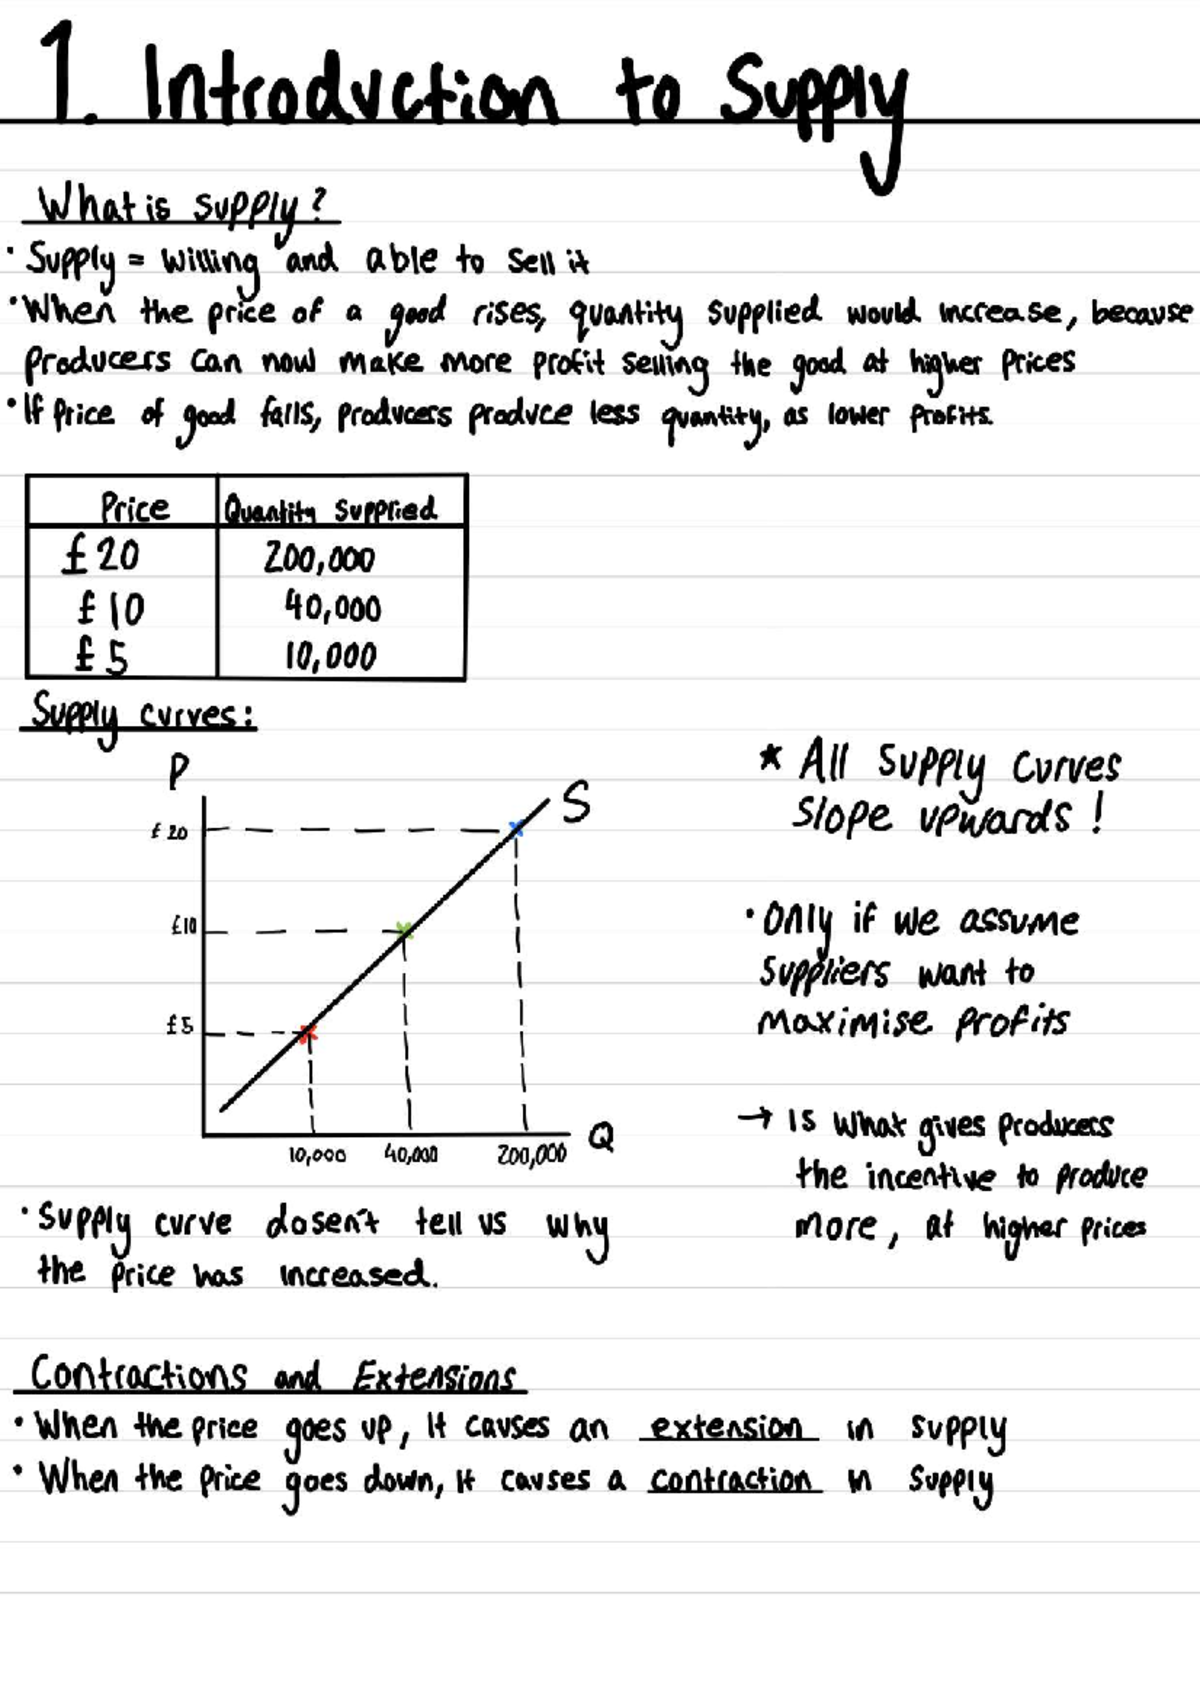 1. Introduction to Supply
What is supply?
· Supply = willing and able to sell it
· When the price of a good rises, quantity supplied would increase, because
producers can now make more profit selling the good at higher prices
· If price of good falls, producers produce less quantity, as lower profits.
Price Quantity Supplied
£20 200,000
£10 40,000
£5 10,000
Supply curves:
P
S
£20
£10
£5
10,000 40,000 200,000 Q
* All supply curves
slope upwards!
· Only if we assume
suppliers want to
maximise profits
→ is what gives producers
the incentive to produce
more, at higher prices
· Supply curve dosen't tell us why
the price has increased.
Contractions and Extensions
· When the price goes up, it causes an extension in supply
· When the price goes down, it causes a contraction in supply